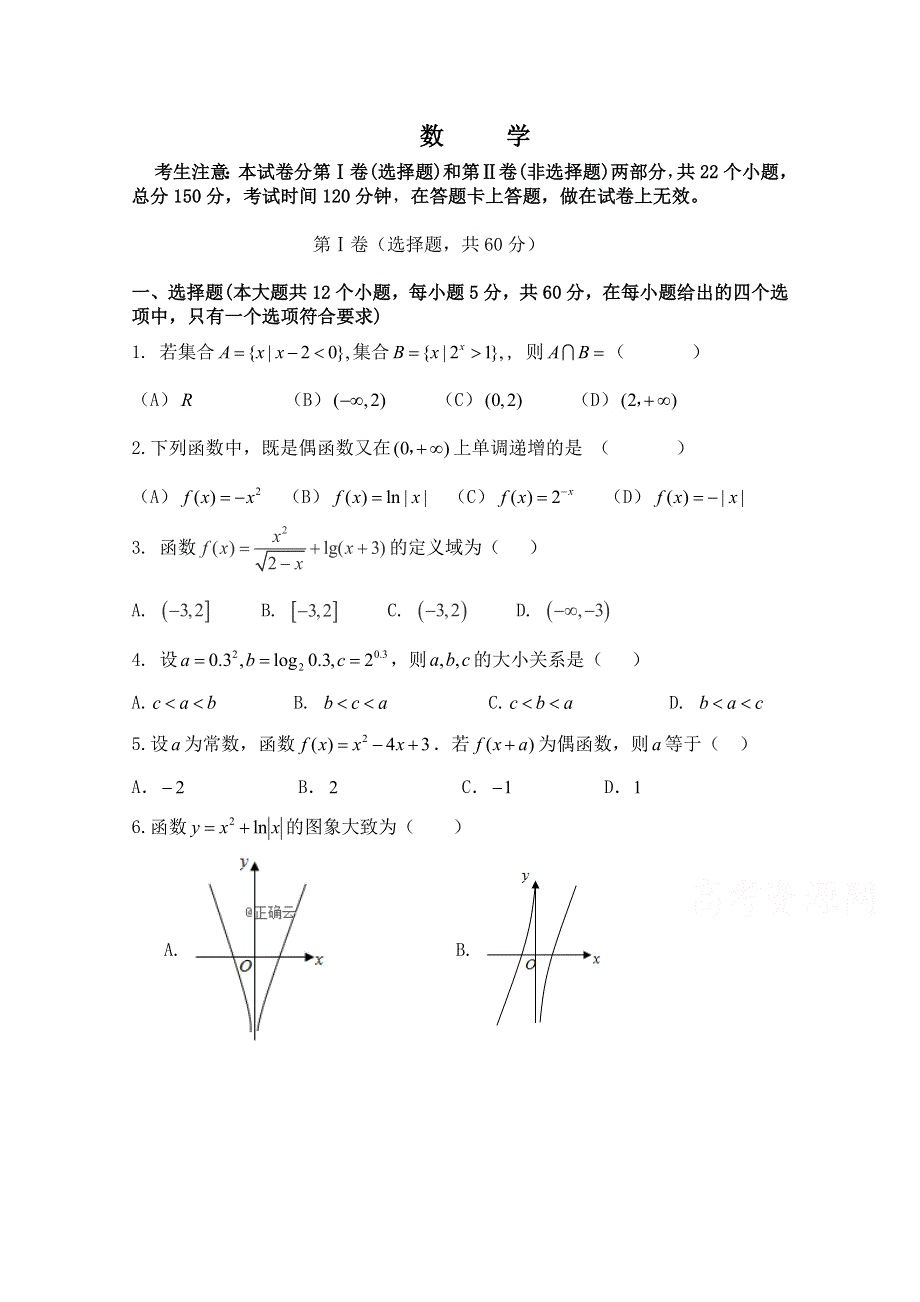 数 学
考生注意：本试卷分第Ⅰ卷(选择题)和第Ⅱ卷(非选择题)两部分，共22个小题，
总分150分，考试时间120分钟，在答题卡上答题，做在试卷上无效。
第Ⅰ卷（选择题，共60分）
一、选择题(本大题共12个小题，每小题5分，共60分，在每小题给出的四个选
项中，只有一个选项符合要求)
1. 若集合A={x|x−2<0},集合B={x|2^x>1},，则A∩B=（ ）
（A）R （B）(−∞,2) （C）(0,2) （D）(2,+∞)
2.下列函数中，既是偶函数又在(0,+∞)上单调递增的是 （ ）
（A）f(x)=−x² （B）f(x)=ln|x| （C）f(x)=2^{−x} （D）f(x)=−|x|
3. 函数f(x)=x²/√(2−x)+lg(x+3)的定义域为（ ）
A. (−3,2] B. [−3,2] C. (−3,2) D. (−∞,−3)
4. 设a=0.3²,b=log₂0.3,c=2^{0.3}，则a,b,c的大小关系是（ ）
A.c<a<b B. b<c<a C.c<b<a D. b<a<c
5.设a为常数，函数f(x)=x²−4x+3．若f(x+a)为偶函数，则a等于（ ）
A．−2 B．2 C．−1 D．1
6.函数y=x²+ln|x|的图象大致为（ ）
A. y O x @正确云
B. y O x
高考资源网